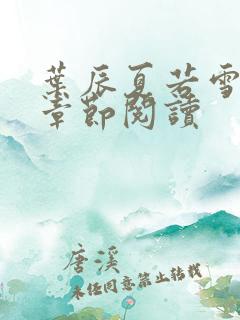 葉辰夏若雪
章節閱讀
唐溪
未经同意禁止转载